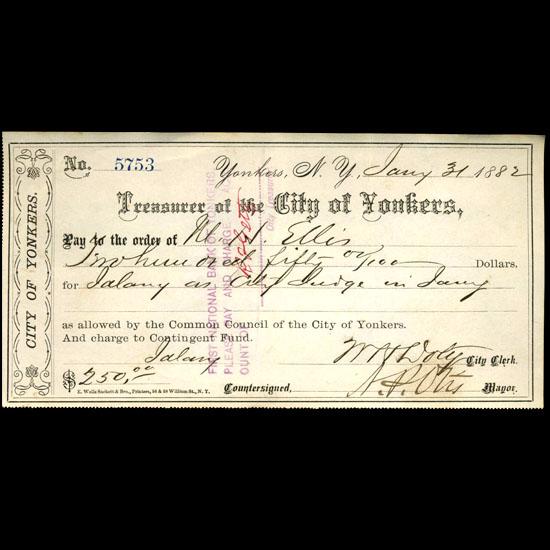 CITY OF YONKERS.
No. 5753
Yonkers, N. Y., Jany 31 1882
Treasurer of the City of Yonkers,
Pay to the order of Ellis
Two hundred fifty 00/100 Dollars.
for Salary as City Judge in Jany
as allowed by the Common Council of the City of Yonkers.
And charge to Contingent Fund.
Salary
W H Doty City Clerk.
$ 250,00
Countersigned, N. P. Otis Mayor.
E. Wells Sackett & Bro., Printers, 56 & 58 William St., N. Y.
FIRST NATIONAL BANK OF YONKERS,
PLEASE PAY AND CHARGE